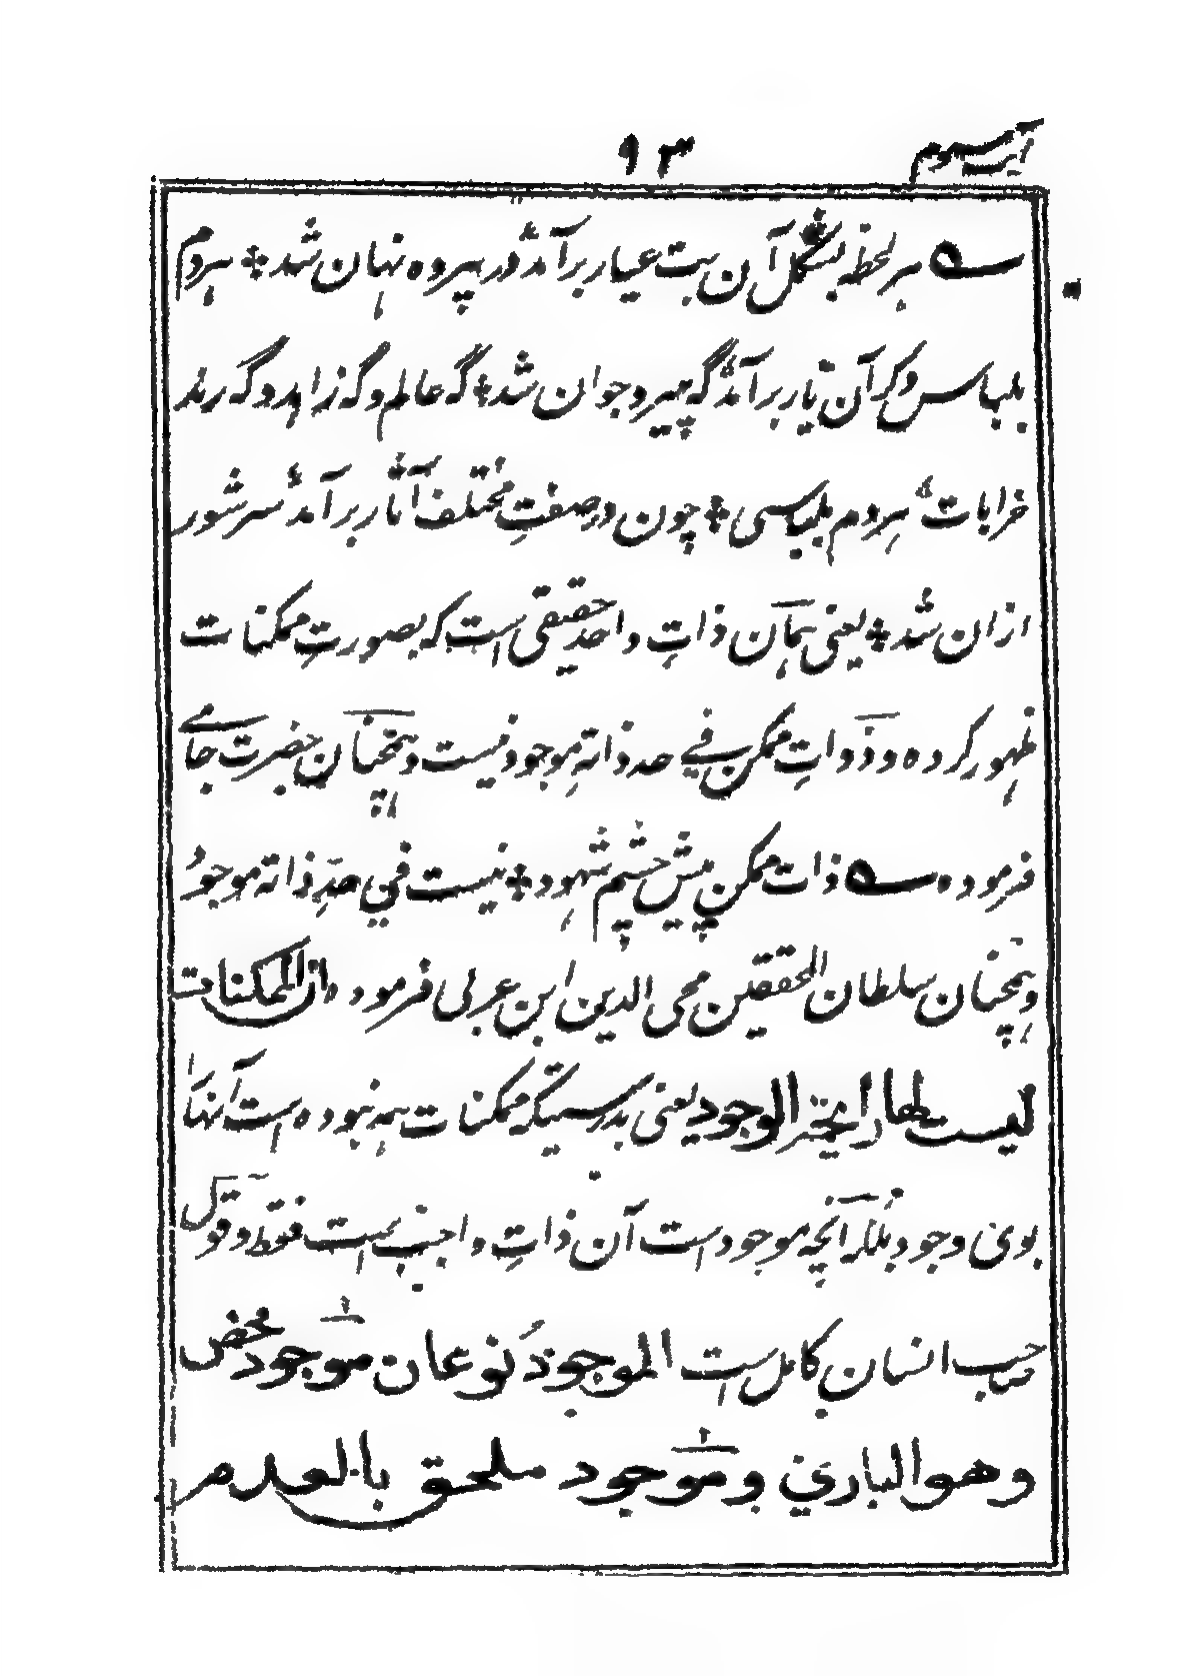 آیت سوم ۹۳
هر لحظه بشکل آن بت عیار برآمد در پرده نهان شد ؞ هردم
بلباس دگر آن یار برآمد گه پیر و جوان شد ؞ گه عالم و گه زاهد و گه رند
خرابات هردم بلباسی ؞ چون در صفتِ مختلف آثار برآمد سر شور
ازان شد ؞ یعنی همان ذاتِ واحدِ حقیقی است که بصورتِ ممکنات
ظهور کرده و ذواتِ ممکن في حد ذاته موجود نیست و همچنان حضرت جامے
فرموده ذات ممکن پیش چشم شهود ؞ نیست في حدِ ذاته موجود
و همچنان سلطان المحققین محی الدین ابن عربی فرموده ان الممکنات
لیست لها رایحة الوجود یعنی بدرستیکه ممکنات همه نبوده است آنها را
بوی وجود بلکه آنچه موجود است آن ذاتِ واجب است فقط و قول
صاحب انسان کامل است الموجود نوعان موجود محض
وهو الباري وموجود ملحق بالعدم